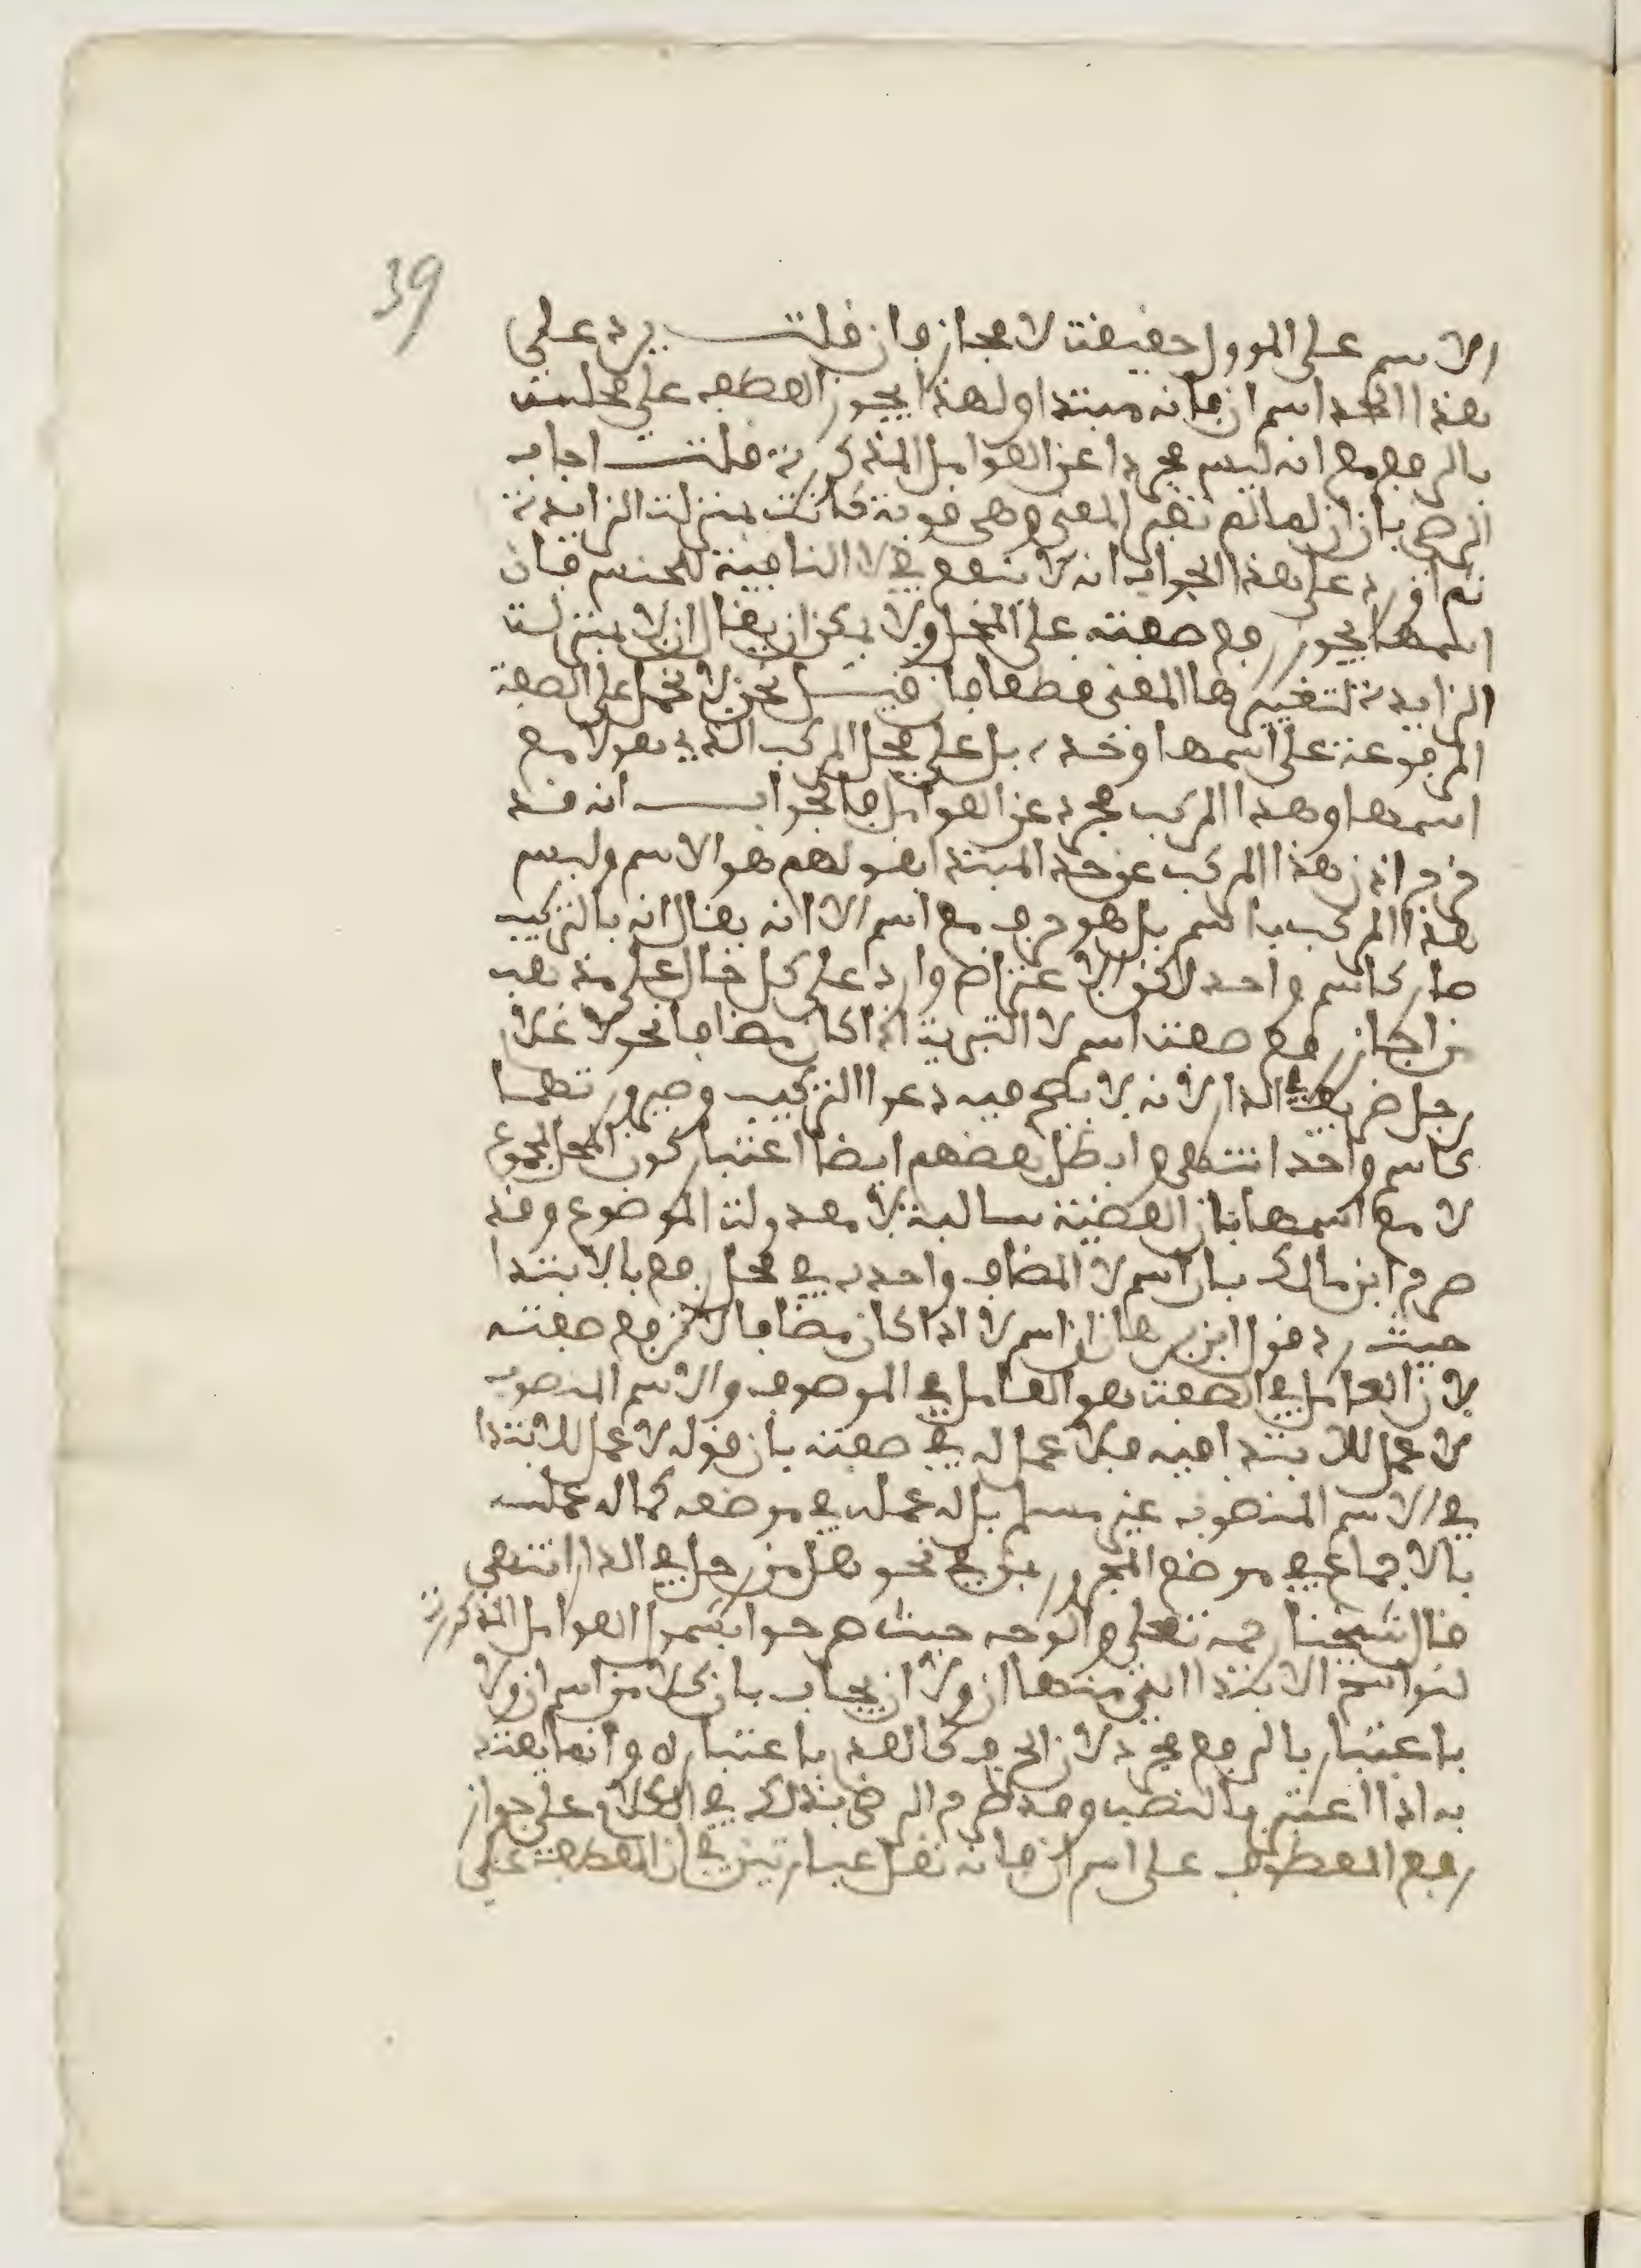 39
الاسم على الموول حقيقة لا مجاز فان قلت يرد على
هذا الحد اسم ان فانه مبتدا ولهذا يجوز العطف على محله
بالرفع مع انه ليس مجردا عن العوامل المذكورة قلت اجاب
الرضي بان ان لما لم تغير المعنى وهي قوية كانت بمنزلة الزايدة
ثم اورد على هذا الجواب انه لا ينفع في لا النافية للجنس فان
اسمها يجوز رفع صفته على المحل ولا يمكن ان يقال ان لا بمنزلة
الزايدة لتغييرها المعنى قطعا فان قيل نحن لا نحمل على الصفة
المرفوعة على اسمها وحده بل على محل المركب الذي هو لا مع
اسمها وهذا المركب مجرد عن العوامل فالجواب انه قد
خرج اذن هذا المركب عن حد المبتدا بقولهم هو الاسم وليس
هذا المركب باسم بل هو حرف مع اسم الا انه يقال انه بالتركيب
صار كاسم واحد لاكن الاعتراض وارد على كل حال على مذهب
من اجاز رفع صفة اسم لا التبرية اذا كان مضافا نحو لا غلام
رجل ظريف في الدار لانه لا يصح فيه دعوا التركيب وصيرورتهما
كاسم واحد انتهى وابطل بعضهم ايضا اعتبار كون المحل لمجموع
لا مع اسمها بان القضية سالبة لا معدولة الموضوع وقد
صرح ابن مالك بان اسم لا المضاف واحده في محل رفع بالابتدا
حيث رد قول ابن برهان ان اسم لا اذا كان مضافا لم ترفع صفته
لان العامل في الصفة هو العامل في الموصوف والاسم المنصوب
لا عمل للابتدا فيه فلا عمل له في صفته بان قوله لا عمل للابتدا
في الاسم المنصوب غير مسلم بل له عمل في موضعه كما له عمل
بالاجماع في موضع المجرور بمن في نحو هل من رجل في الدار انتهى
قال شيخنا رحمه تعلى والوجه حيث صرحوا بشمول العوامل المذكورة
لنواسخ الابتدا التي منها ان ولا ان يجاب بان كلا من اسم ان ولا
باعتبار بالرفع مجرد لان الحرف كالعدم باعتباره وانما يعتد
به اذا اعتبر بالنصب وقد صرح الرضي بذلك في الكلام على جواز
رفع المعطوف على اسم ان فانه نقل عبارتين في ان العطف على